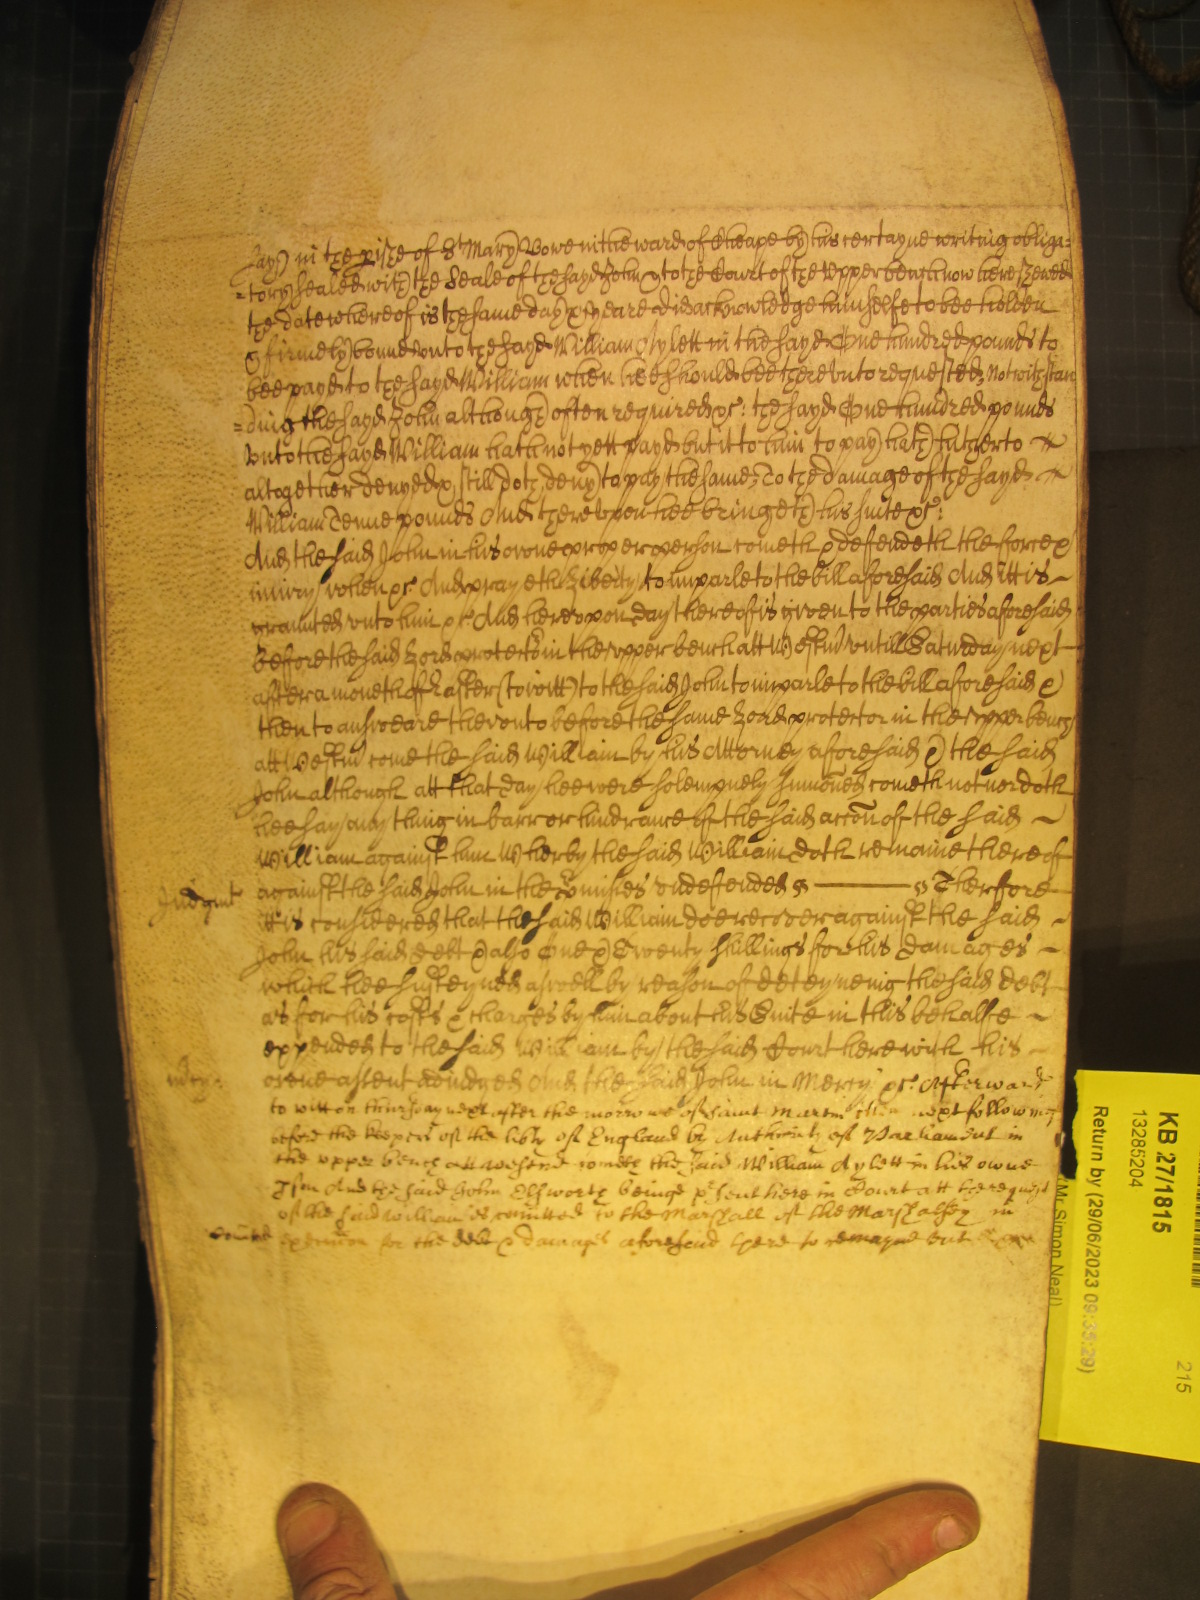 say) in the p'ishe of St Mary Bowe in the ward of Cheape by his certayne writing obliga=
=tory sealed with the Seale of the sayd John & to the Court of the Upper bench now here shewed
the date whereof is the same day & yeare did acknowledge himselfe to bee holden
& firmely bound unto the sayd William Aylett in the sayd One hundred pounds to
bee payd to the sayd William when hee should bee thereunto requested Notwithstan
=ding the sayd John although often required &c: the sayd One hundred pounds
unto the sayd William hath not yett payd but it to him to pay hath hitherto
altogether denyed & still doth deny to pay the same, To the damage of the sayd
William Tenne pounds And thereupon hee bringeth his suite &c:
And the said John in his owne proper person cometh & defendeth the force &
iniury when &c And prayeth Liberty to imparle to the bill aforesaid And itt is
graunted unto him &c And hereupon day thereof is given to the parties aforesaid
before the said Lord protector in the upper bench att Westm' untill Saturday next
after a moneth of Easter (to witt) to the said John to imparle to the bill aforesaid &
then to answeare thereunto before the same Lord protector in the upper bench
att Westm' come the said William by his Attorney aforesaid & the said
John although att that day hee were solempnely sumoned cometh not nor doth
hee say any thing in barr or hindrance of the said accon of the said
William against him Wherby the said William doth remaine thereof
against the said John in the p'mises undefended Therfore
Judgmt
itt is considered that the said William doe recover against the said
John his said debt & also One & Twenty shillings for his damages
which hee susteyned aswell by reason of deteyneing the said debt
as for his costs & charges by him about his Suite in this behalfe
expended to the said William by the said Court here with his
mercy:
owne assent adiudged And the said John in Mercy &c. Afterward
to witt on thursday next after the morrowe of Saint Martin then next following
before the keepers of the lib'ty of England by Authority of Parliament in
the upper bench att Westm' cometh the said William Aylett in his owne
p'son And the said John Elsworth beinge p'sent here in Court att the request
of the said William is comitted to the Marshall of the Marshalsey in
Comitted
execucon for the debt & damages aforesaid there to remayne unt
KB 27/1815
13285204
Return by (29/06/2023 09:35:29)
Mr Simon Neal)
215